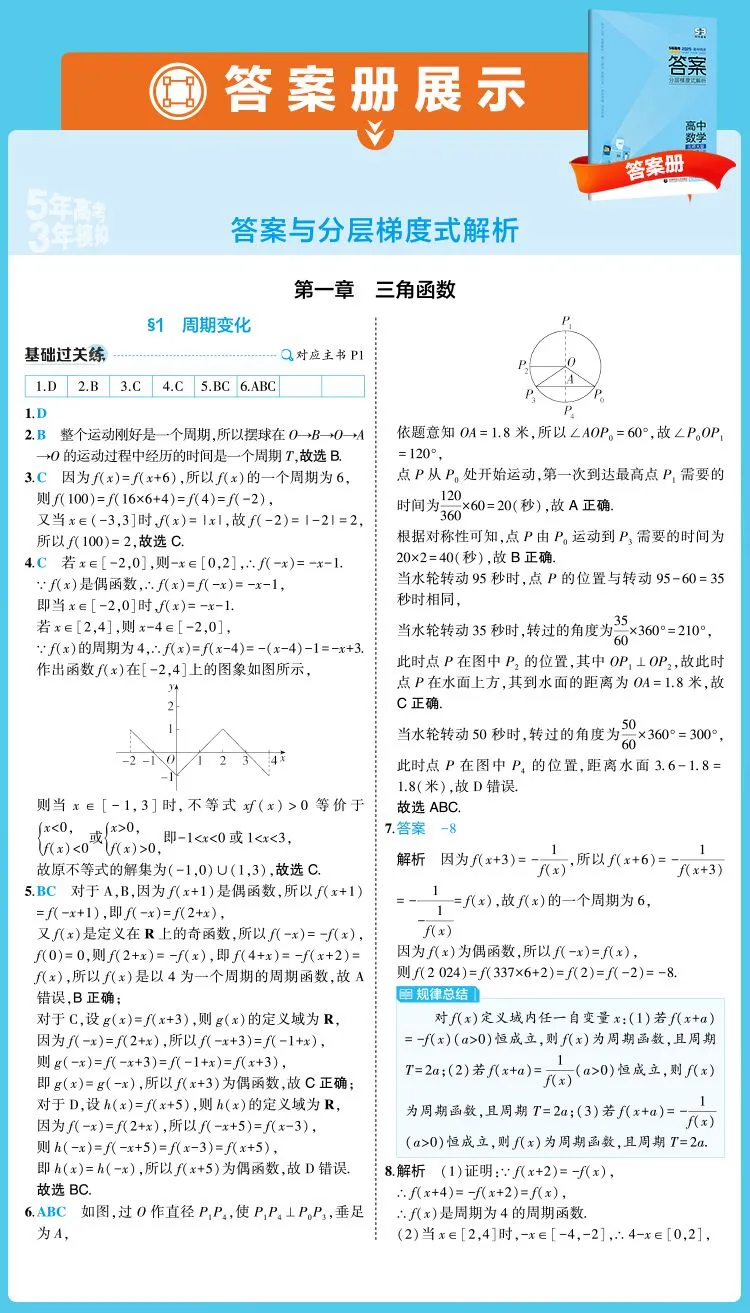 答案册展示
答案
分层梯度式解析
高中
数学
答案册
5年高考
3年模拟
答案与分层梯度式解析
第一章 三角函数
§1 周期变化
基础过关练 对应主书P1
1.D 2.B 3.C 4.C 5.BC 6.ABC
1.D
2.B 整个运动刚好是一个周期,所以摆球在O→B→O→A
→O的运动过程中经历的时间是一个周期T,故选B.
3.C 因为f(x)=f(x+6),所以f(x)的一个周期为6,
则f(100)=f(16×6+4)=f(4)=f(-2),
又当x∈(-3,3]时,f(x)=|x|,故f(-2)=|-2|=2,
所以f(100)=2,故选C.
4.C 若x∈[-2,0],则-x∈[0,2],∴f(-x)=-x-1.
∵f(x)是偶函数,∴f(x)=f(-x)=-x-1,
即当x∈[-2,0]时,f(x)=-x-1.
若x∈[2,4],则x-4∈[-2,0],
∵f(x)的周期为4,∴f(x)=f(x-4)=-(x-4)-1=-x+3.
作出函数f(x)在[-2,4]上的图象如图所示,
y
2
1
-2 -1 O 1 2 3 4 x
-1
则当x∈[-1,3]时,不等式xf(x)>0等价于
{x<0, f(x)<0 或 {x>0, f(x)>0, 即-1<x<0或1<x<3,
故原不等式的解集为(-1,0)∪(1,3),故选C.
5.BC 对于A,B,因为f(x+1)是偶函数,所以f(x+1)
=f(-x+1),即f(-x)=f(2+x),
又f(x)是定义在R上的奇函数,所以f(-x)=-f(x),
f(0)=0,则f(2+x)=-f(x),即f(4+x)=-f(x+2)=
f(x),所以f(x)是以4为一个周期的周期函数,故A
错误,B正确;
对于C,设g(x)=f(x+3),则g(x)的定义域为R,
因为f(-x)=f(2+x),所以f(-x+3)=f(-1+x),
则g(-x)=f(-x+3)=f(-1+x)=f(x+3),
即g(x)=g(-x),所以f(x+3)为偶函数,故C正确;
对于D,设h(x)=f(x+5),则h(x)的定义域为R,
因为f(-x)=f(2+x),所以f(-x+5)=f(x-3),
则h(-x)=f(-x+5)=f(x-3)=f(x+5),
即h(x)=h(-x),所以f(x+5)为偶函数,故D错误.
故选BC.
6.ABC 如图,过O作直径P₁P₄,使P₁P₄⊥P₀P₃,垂足
为A,
P₁
P₂ O
A
P₃ P₀
P₄
依题意知OA=1.8米,所以∠AOP₀=60°,故∠P₀OP₁
=120°,
点P从P₀处开始运动,第一次到达最高点P₁需要的
时间为120/360×60=20(秒),故A正确.
根据对称性可知,点P由P₀运动到P₃需要的时间为
20×2=40(秒),故B正确.
当水轮转动95秒时,点P的位置与转动95-60=35
秒时相同,
当水轮转动35秒时,转过的角度为35/60×360°=210°,
此时点P在图中P₂的位置,其中OP₁⊥OP₂,故此时
点P在水面上方,其到水面的距离为OA=1.8米,故
C正确.
当水轮转动50秒时,转过的角度为50/60×360°=300°,
此时点P在图中P₄的位置,距离水面3.6-1.8=
1.8(米),故D错误.
故选ABC.
7.答案 -8
解析 因为f(x+3)=-1/f(x),所以f(x+6)=-1/f(x+3)
=-1/(-1/f(x))=f(x),故f(x)的一个周期为6,
因为f(x)为偶函数,所以f(-x)=f(x),
则f(2 024)=f(337×6+2)=f(2)=f(-2)=-8.
规律总结
对f(x)定义域内任一自变量x:(1)若f(x+a)
=-f(x)(a>0)恒成立,则f(x)为周期函数,且周期
T=2a;(2)若f(x+a)=1/f(x)(a>0)恒成立,则f(x)
为周期函数,且周期T=2a;(3)若f(x+a)=-1/f(x)
(a>0)恒成立,则f(x)为周期函数,且周期T=2a.
8.解析 (1)证明:∵f(x+2)=-f(x),
∴f(x+4)=-f(x+2)=f(x),
∴f(x)是周期为4的周期函数.
(2)当x∈[2,4]时,-x∈[-4,-2],∴4-x∈[0,2],